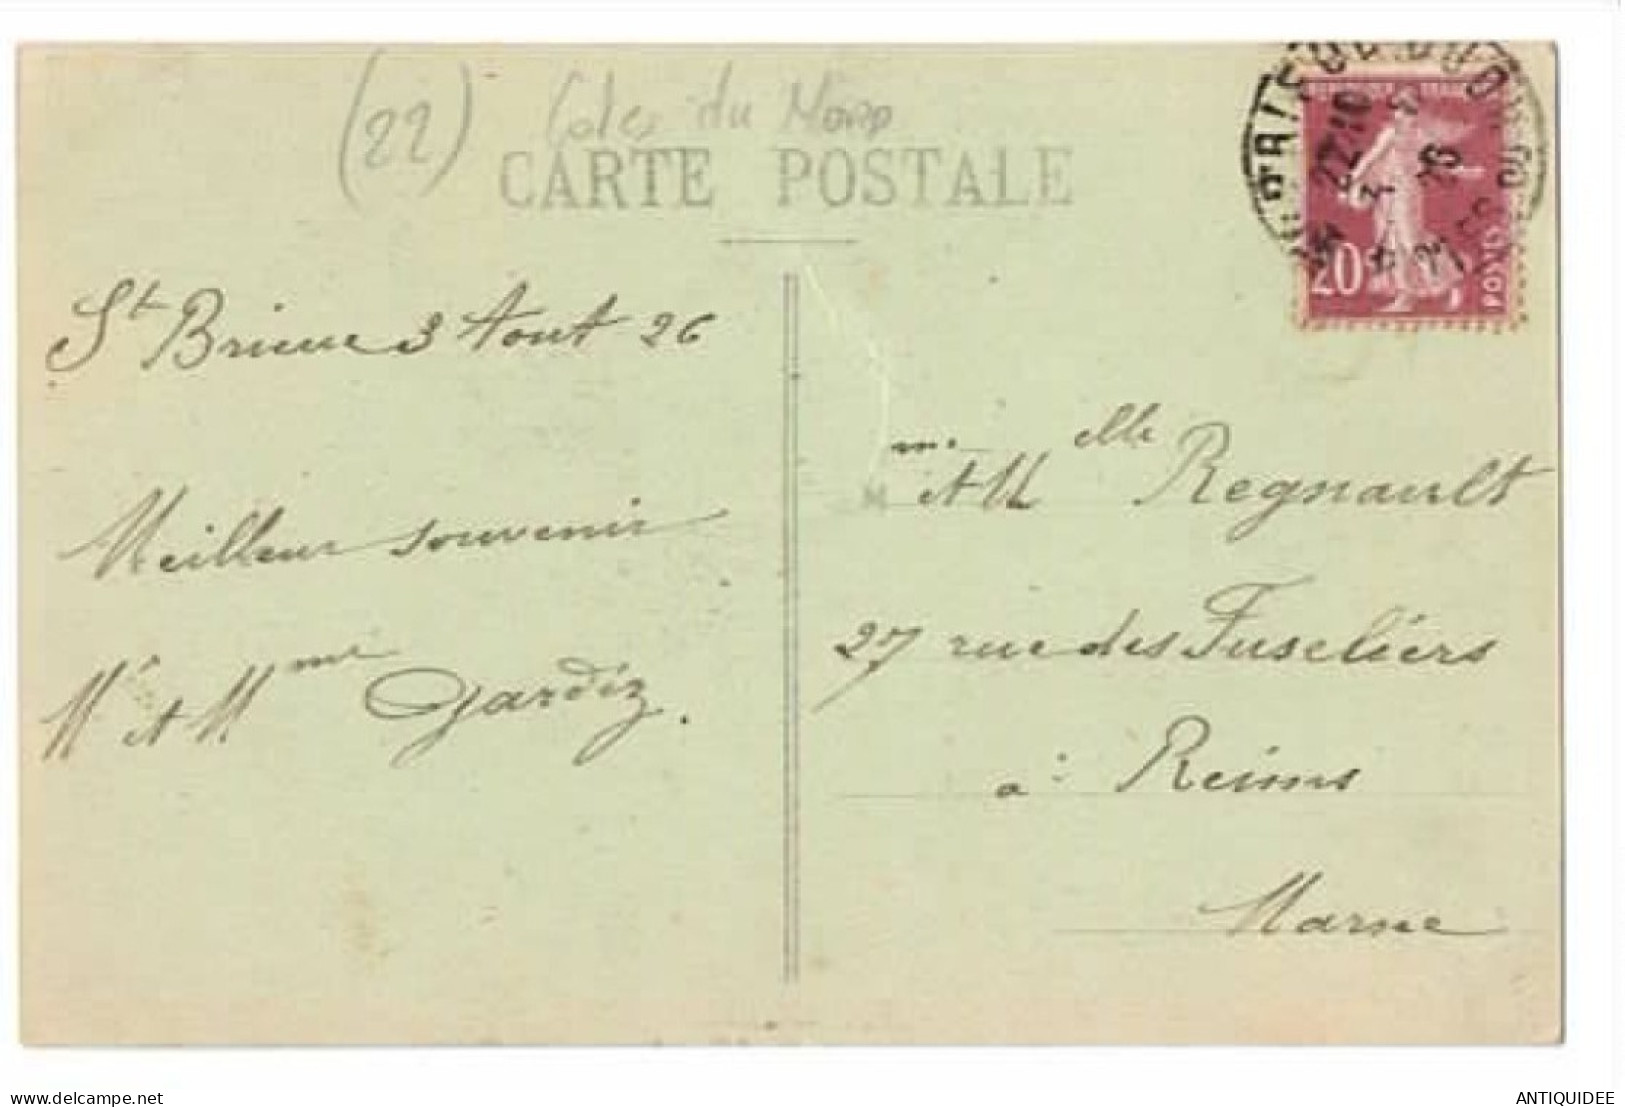 (22) Cotes du Nord
CARTE POSTALE
St Brieuc 3 Aout 26
Meilleur souvenir
Mr et Mme Gardiz.
22 10
3
26
20c
POSTES
m.
et Melle Regnault
27 rue des Fuseliers
à Reims
Marne
delcampe.net
ANTIQUIDEE